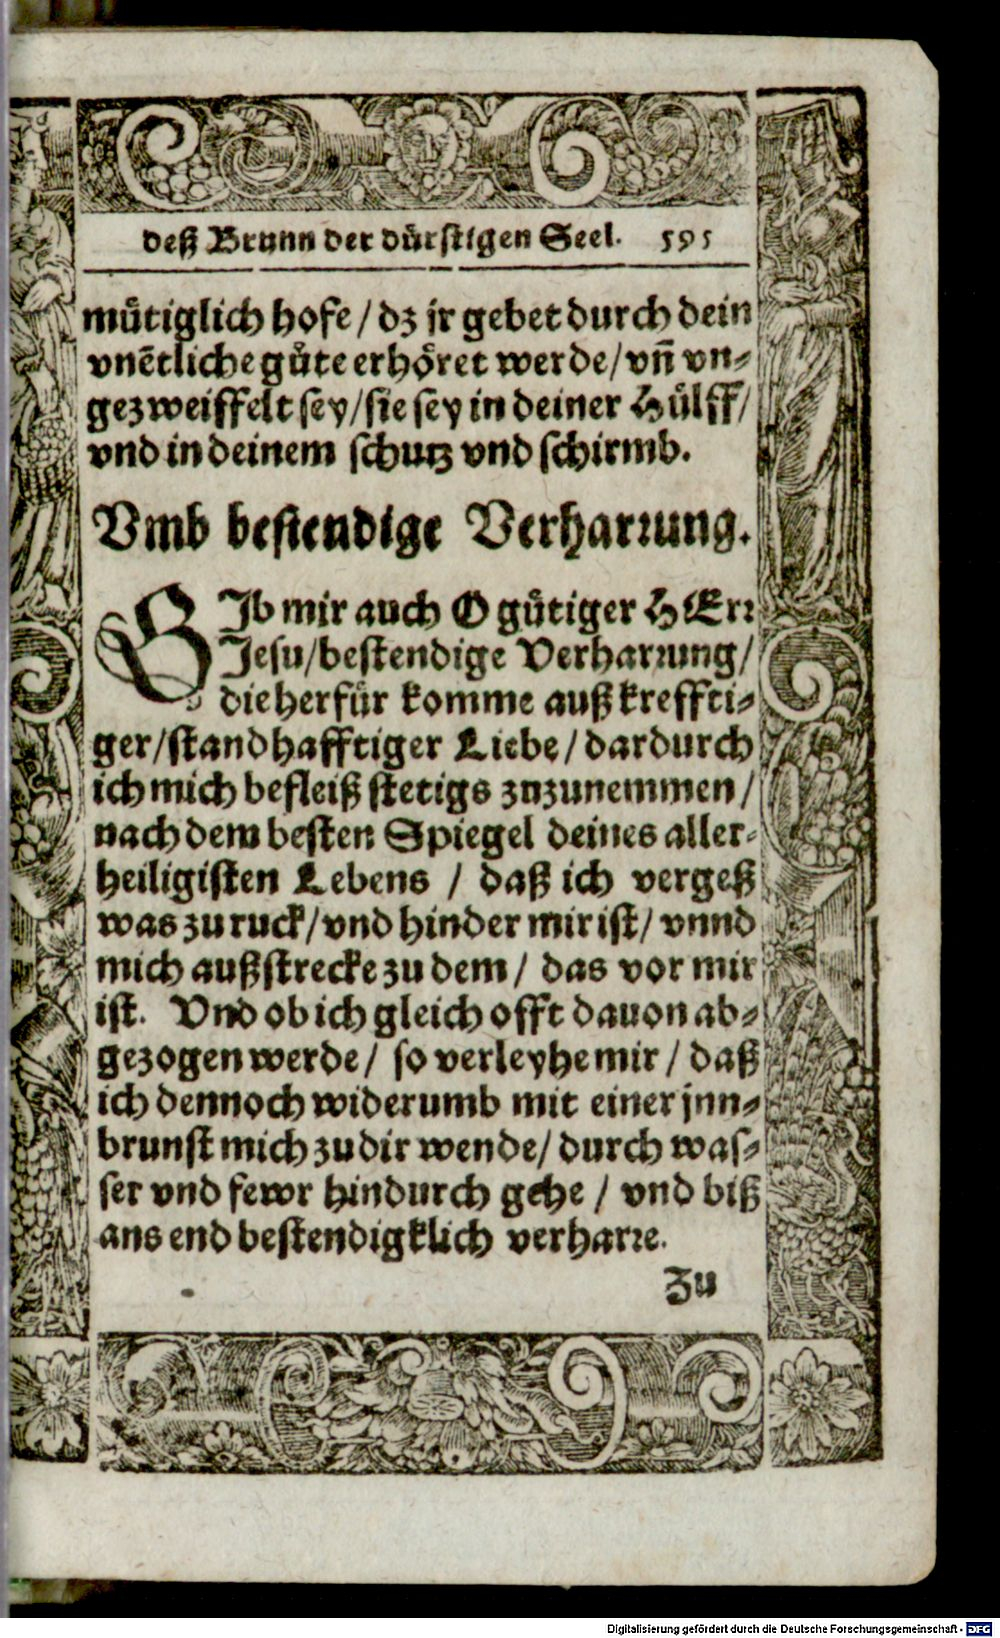 deß Brunn der dürstigen Seel. 595
mütiglich hofe / dz jr gebet durch dein
vnẽtliche güte erhöret werde / vñ vn⸗
gezweiffelt sey / sie sey in deiner Hülff /
vnd in deinem schutz vnd schirmb.
Vmb bestendige Verharrung.
GJb mir auch O gütiger HErr
Jesu / bestendige Verharrung /
die herfür komme auß kreffti⸗
ger / standhafftiger Liebe / dardurch
ich mich befleiß stetigs znzunemmen /
nach dem besten Spiegel deines aller⸗
heiligisten Lebens / daß ich vergeß
was zu ruck / vnd hinder mir ist / vnnd
mich außstrecke zu dem / das vor mir
ist. Vnd ob ich gleich offt dauon ab⸗
gezogen werde / so verleyhe mir / daß
ich dennoch widerumb mit einer jnn⸗
brunst mich zu dir wende / durch was⸗
ser vnd fewr hindurch gehe / vnd biß
ans end bestendigklich verharre.
Zu
Digitalisierung gefördert durch die Deutsche Forschungsgemeinschaft - DFG